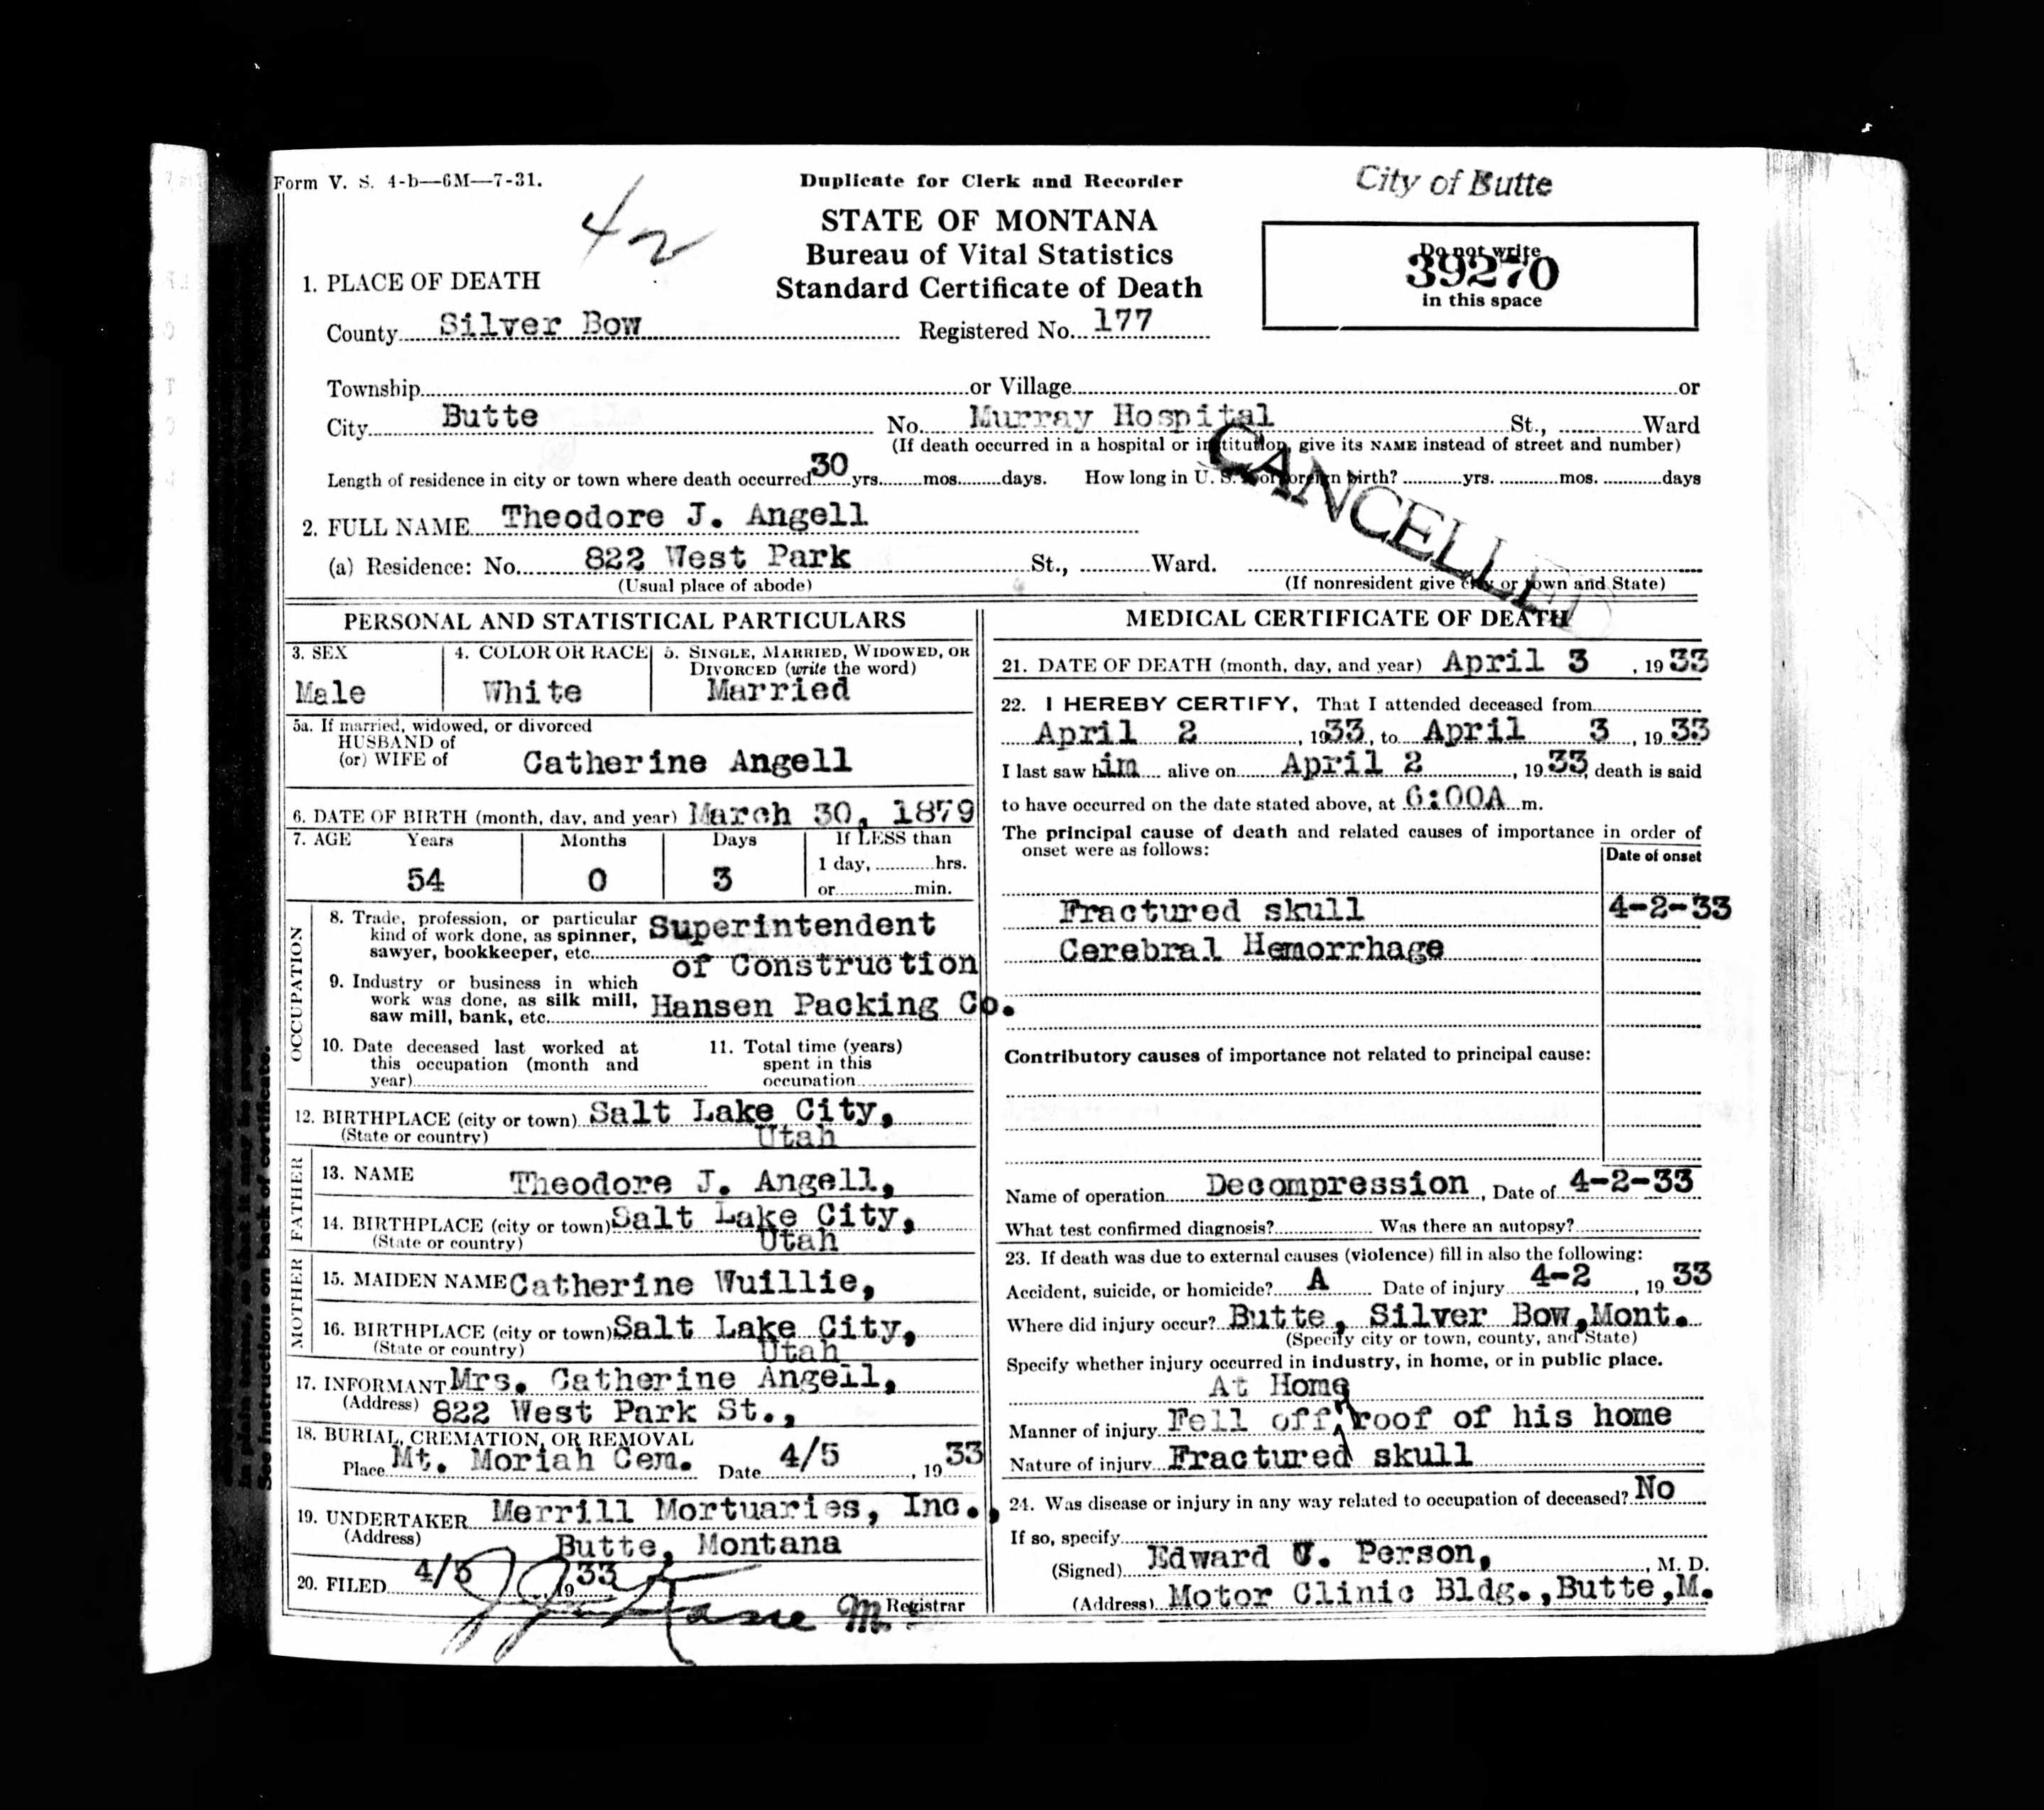 Form V. S. 4-b—6M—7-31.
Duplicate for Clerk and Recorder
City of Butte
42
STATE OF MONTANA
Bureau of Vital Statistics
Standard Certificate of Death
Do not write
39270
in this space
1. PLACE OF DEATH
County Silver Bow Registered No. 177
Township or Village or
City Butte No. Murray Hospital St., Ward
(If death occurred in a hospital or institution, give its NAME instead of street and number)
CANCELLED
Length of residence in city or town where death occurred 30 yrs. mos. days. How long in U. S. if of foreign birth? yrs. mos. days
2. FULL NAME Theodore J. Angell
(a) Residence: No. 822 West Park St., Ward.
(Usual place of abode) (If nonresident give city or town and State)
PERSONAL AND STATISTICAL PARTICULARS
3. SEX
Male
4. COLOR OR RACE
White
5. SINGLE, MARRIED, WIDOWED, OR
DIVORCED (write the word)
Married
5a. If married, widowed, or divorced
HUSBAND of
(or) WIFE of Catherine Angell
6. DATE OF BIRTH (month, day, and year) March 30, 1879
7. AGE Years Months Days If LESS than
1 day, hrs.
54 0 3
or min.
OCCUPATION
8. Trade, profession, or particular
kind of work done, as spinner,
sawyer, bookkeeper, etc. Superintendent
of Construction
9. Industry or business in which
work was done, as silk mill,
saw mill, bank, etc. Hansen Packing Co.
10. Date deceased last worked at
this occupation (month and
year)
11. Total time (years)
spent in this
occupation
12. BIRTHPLACE (city or town) Salt Lake City,
(State or country) Utah
FATHER
13. NAME Theodore J. Angell,
14. BIRTHPLACE (city or town) Salt Lake City,
(State or country) Utah
MOTHER
15. MAIDEN NAME Catherine Wuillie,
16. BIRTHPLACE (city or town) Salt Lake City,
(State or country) Utah
17. INFORMANT Mrs. Catherine Angell,
(Address) 822 West Park St.,
18. BURIAL, CREMATION, OR REMOVAL
Place Mt. Moriah Cem. Date 4/5, 1933
19. UNDERTAKER Merrill Mortuaries, Inc.,
(Address) Butte, Montana
20. FILED 4/5 1933 Kane M. Registrar
MEDICAL CERTIFICATE OF DEATH
21. DATE OF DEATH (month, day, and year) April 3, 1933
22. I HEREBY CERTIFY, That I attended deceased from
April 2, 1933, to April 3, 1933
I last saw him alive on April 2, 1933, death is said
to have occurred on the date stated above, at 6:00A m.
The principal cause of death and related causes of importance in order of
onset were as follows:
Date of onset
Fractured skull 4-2-33
Cerebral Hemorrhage
Contributory causes of importance not related to principal cause:
Name of operation Decompression, Date of 4-2-33
What test confirmed diagnosis? Was there an autopsy?
23. If death was due to external causes (violence) fill in also the following:
Accident, suicide, or homicide? A Date of injury 4-2, 1933
Where did injury occur? Butte, Silver Bow,Mont.
(Specify city or town, county, and State)
Specify whether injury occurred in industry, in home, or in public place.
At Home
Manner of injury Fell off roof of his home
Nature of injury Fractured skull
24. Was disease or injury in any way related to occupation of deceased? No
If so, specify
(Signed) Edward J. Person, M. D.
(Address) Motor Clinic Bldg.,Butte,M.
See instructions on back of certificate.